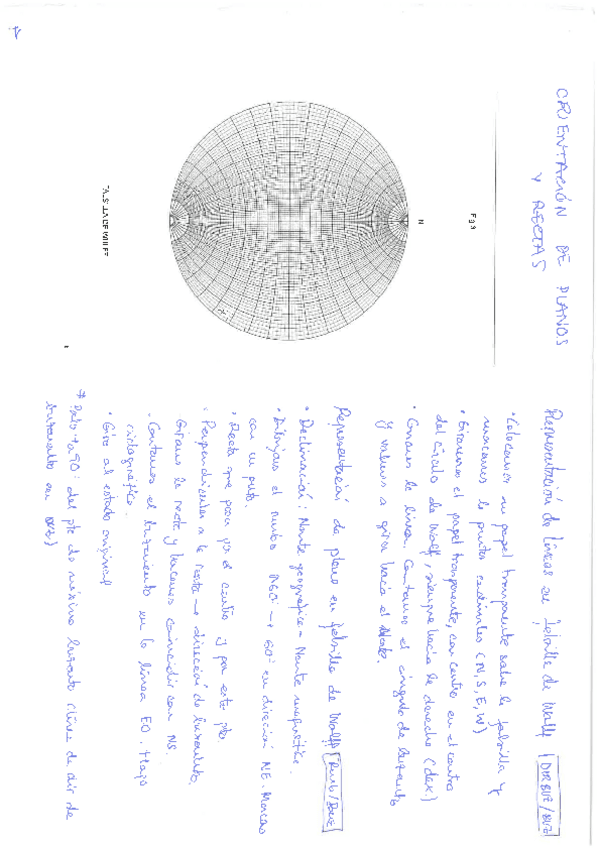 ORIENTACIÓN DE PLANOS
Y RECTAS
Fig 3
N
FALSILLA DE WULFF
Representación de líneas en falsilla de Wulff
DIR BUZ/BUZ
• Colocamos un papel transparente sobre la falsilla y
marcamos los puntos cardinales (N, S, E, W)
• Giramos el papel transparente, con centro en el centro
del círculo de Wulff, siempre hacia la derecha (dex.)
• Giramos la línea. Contamos el ángulo de buzamiento
y volvemos a girar hacia el Norte.
Representación de plano en falsilla de Wulff
Rumb/Buz
• Declinación: Norte geográfico - Norte magnético.
• Dibujamos el rumbo N60º → 60º en dirección NE. Marcamos
con un punto.
• Recta que pasa por el centro y por este pto
• Perpendicular a la recta → dirección de buzamiento.
Giramos la recta y hacemos coincidir con NS.
• Contamos el buzamiento en la línea EO. Hago
ciclográfica.
• Giro al estado original
* Polo + a 90º del pto de máximo buzamiento (línea de dir de
buzamiento en buz)
1